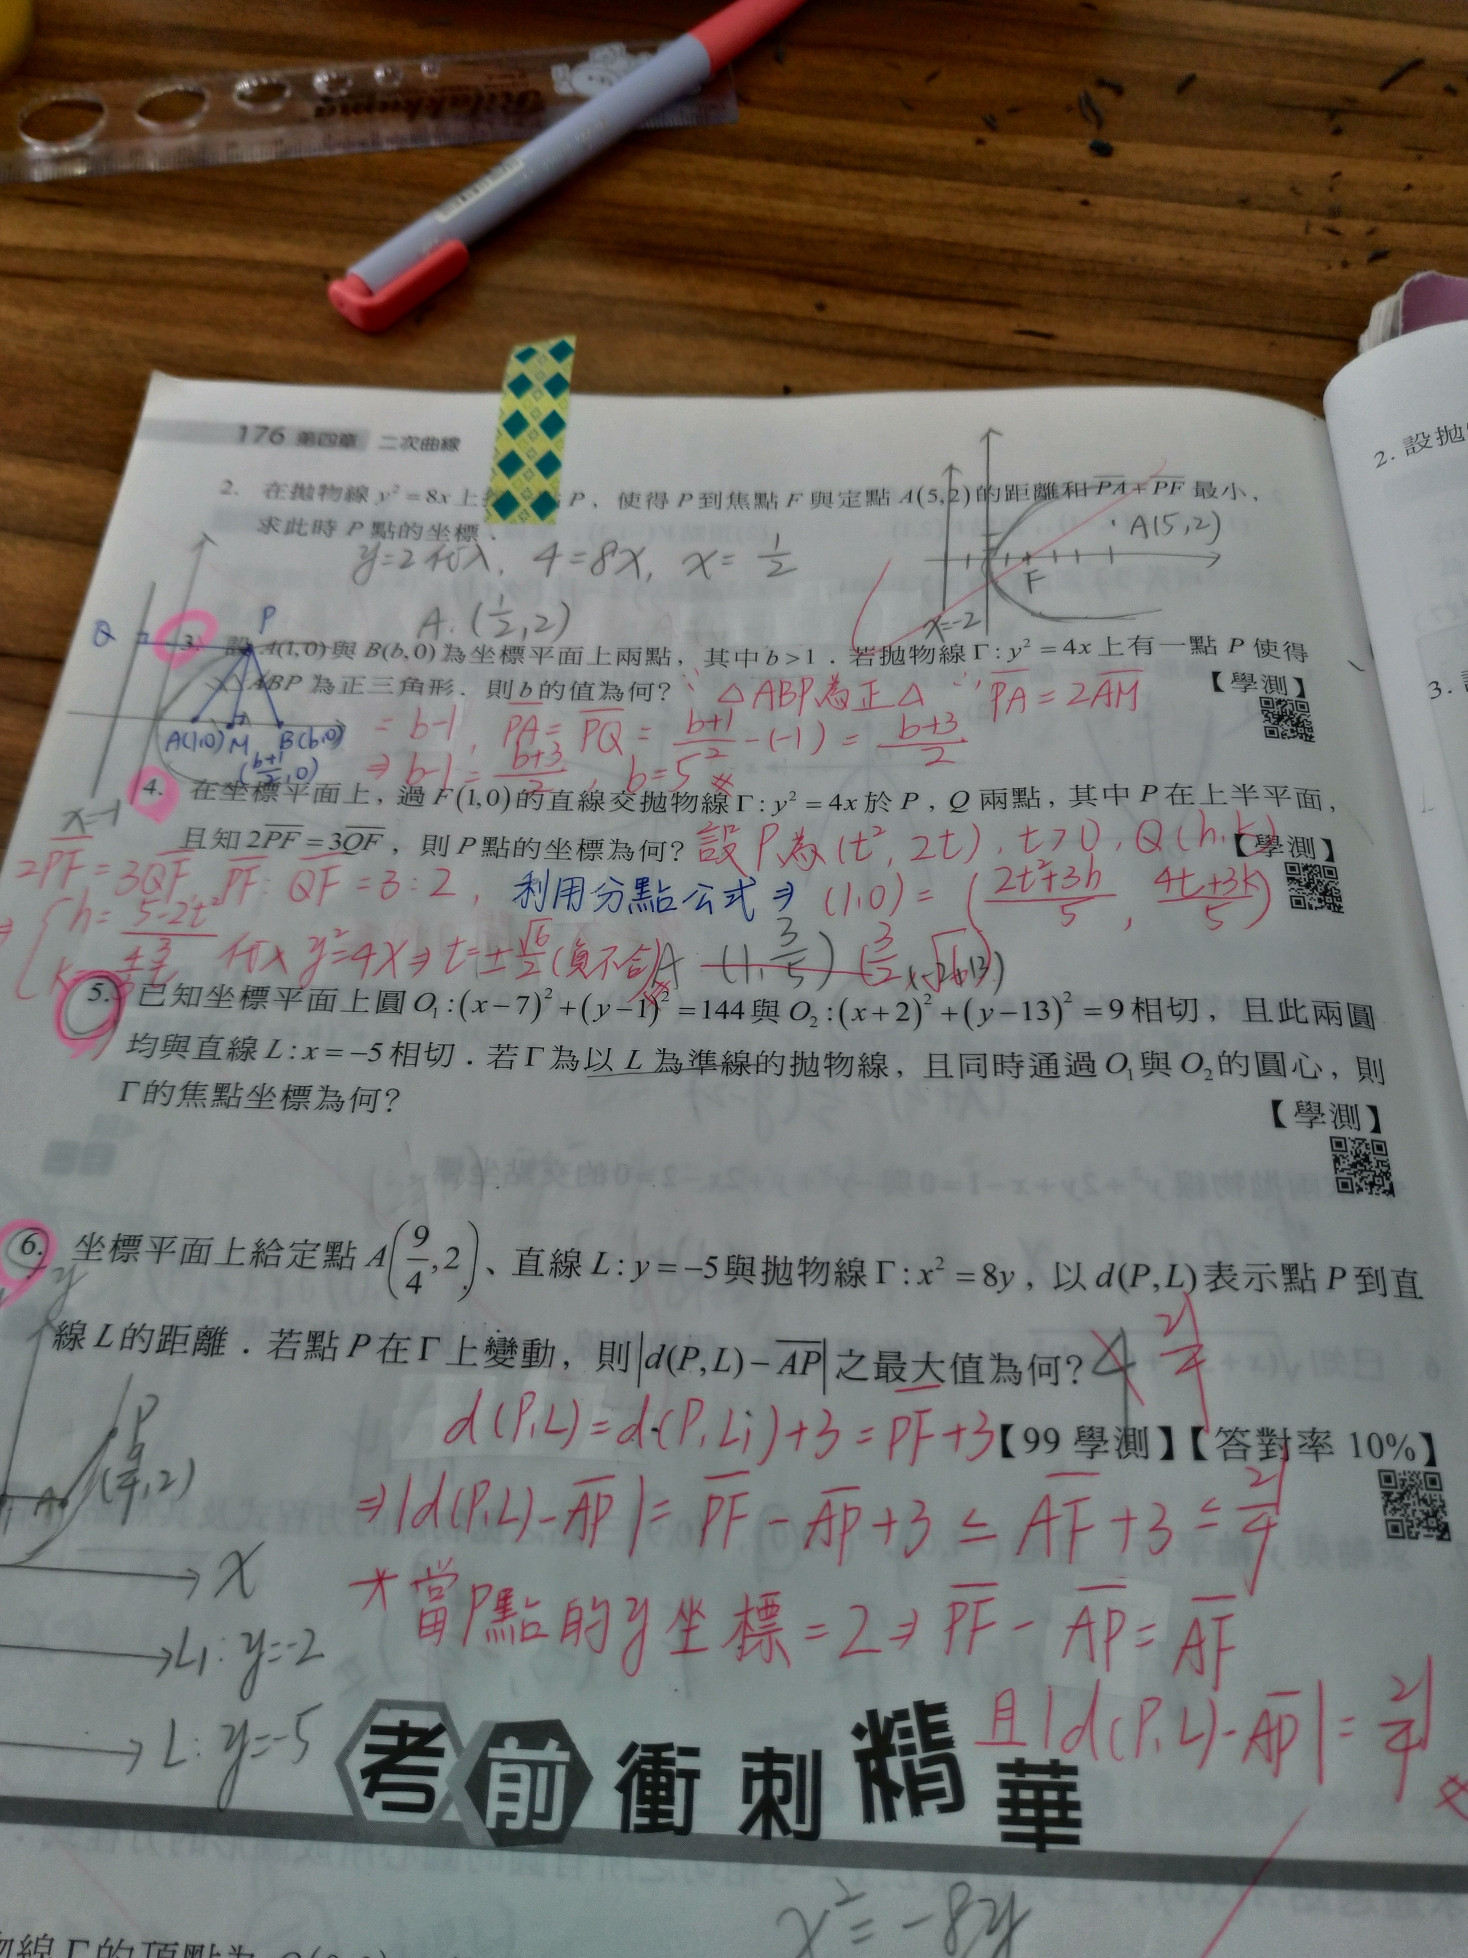 Rilakkuma
176 第四章 二次曲線
2. 在拋物線 y² = 8x 上 P，使得 P 到焦點 F 與定點 A(5,2) 的距離和 PA + PF 最小，
求此時 P 點的坐標．
y=2代入, 4=8x, x=1/2
A: (1/2, 2)
A(5,2)
F
x=-2
3. 設 A(1,0) 與 B(b,0) 為坐標平面上兩點，其中 b>1．若拋物線 Γ: y² = 4x 上有一點 P 使得
△ABP 為正三角形．則 b 的值為何?
【學測】
∵ △ABP為正△ ∴ PA = 2AM
= b-1, PA = PQ = b+1/2 -(-1) = b+3/2
⇒ b-1 = b+3/2, b=5
Q
P
A(1,0) M B(b,0)
(b+1/2, 0)
x=-1
4. 在坐標平面上，過 F(1,0) 的直線交拋物線 Γ: y² = 4x 於 P，Q 兩點，其中 P 在上半平面，
且知 2PF = 3QF，則 P 點的坐標為何?
【學測】
設P為(t², 2t), t>0, Q(h,k)
2PF = 3QF, PF: QF = 3:2, 利用分點公式⇒ (1,0) = (2t²+3h/5, 4t+3k/5)
⇒ { h= 5-2t²/3
k= -4t/3 代入 y²=4x ⇒ t=±√6/2 (負不合)
5. 已知坐標平面上圓 O₁: (x−7)² + (y−1)² = 144 與 O₂: (x+2)² + (y−13)² = 9 相切，且此兩圓
均與直線 L: x = −5 相切．若 Γ 為以 L 為準線的拋物線，且同時通過 O₁ 與 O₂ 的圓心，則
Γ 的焦點坐標為何?
【學測】
6. 坐標平面上給定點 A(9/4, 2)、直線 L: y = −5 與拋物線 Γ: x² = 8y，以 d(P,L) 表示點 P 到直
線 L 的距離．若點 P 在 Γ 上變動，則 |d(P,L) − AP| 之最大值為何?
21/4
【99 學測】【答對率 10%】
d(P,L) = d(P,L₁)+3 = PF+3
⇒ |d(P,L)-AP| = PF - AP+3 ≤ AF+3 = 21/4
*當P點的y坐標=2⇒ PF - AP = AF
且|d(P,L)-AP| = 21/4
y
P
A
(9/4, 2)
x
L₁: y=-2
L: y=-5
考前衝刺精華
x² = -8y
2. 設拋
3.